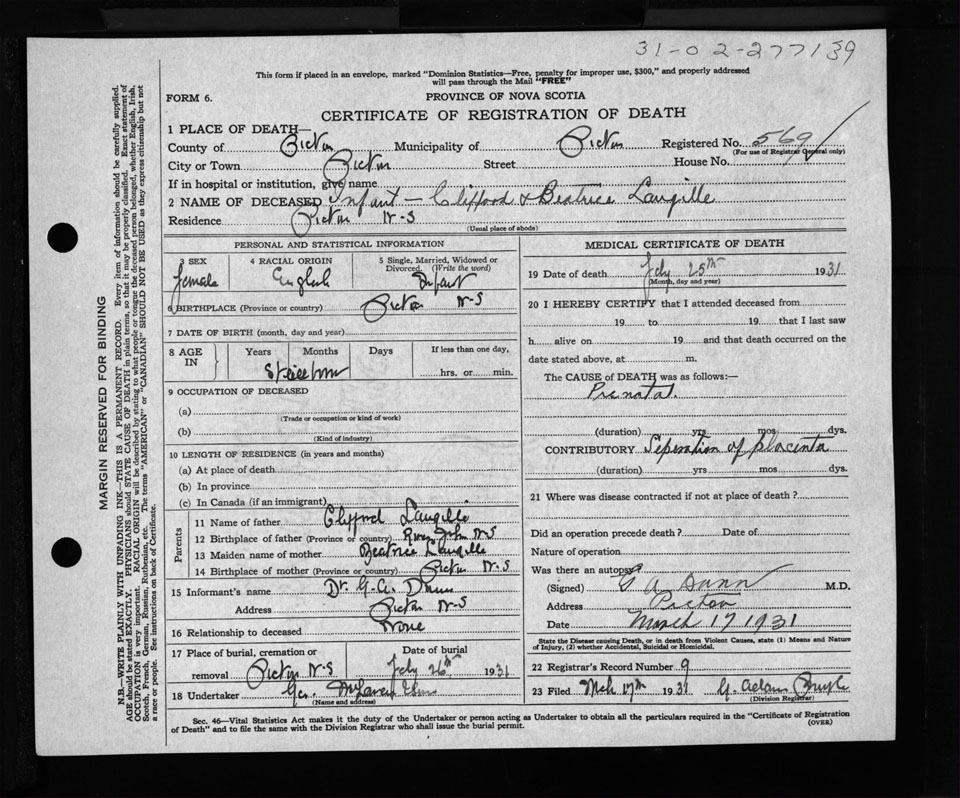 31-02-277139
This form if placed in an envelope, marked "Dominion Statistics—Free, penalty for improper use, $300," and properly addressed
will pass through the Mail "FREE"
FORM 6. PROVINCE OF NOVA SCOTIA
CERTIFICATE OF REGISTRATION OF DEATH
1 PLACE OF DEATH—
County of Pictou Municipality of Pictou Registered No. 569
(For use of Registrar General only)
City or Town Pictou Street House No.
If in hospital or institution, give name
2 NAME OF DECEASED Infant — Clifford & Beatrice Langille
Residence Pictou N-S
(Usual place of abode)
PERSONAL AND STATISTICAL INFORMATION
3 SEX 4 RACIAL ORIGIN 5 Single, Married, Widowed or
Divorced. (Write the word)
female English Infant
6 BIRTHPLACE (Province or country) Pictou N-S
7 DATE OF BIRTH (month, day and year)
8 AGE IN Years Months Days If less than one day,
Stillborn hrs. or min.
9 OCCUPATION OF DECEASED
(a)
(Trade or occupation or kind of work)
(b)
(Kind of industry)
10 LENGTH OF RESIDENCE (in years and months)
(a) At place of death
(b) In province
(c) In Canada (if an immigrant)
Parents
11 Name of father Clifford Langille
12 Birthplace of father (Province or country) River John N-S
13 Maiden name of mother Beatrice Langille
14 Birthplace of mother (Province or country) Pictou N-S
15 Informant's name Dr. G. A. Dunn
Address Pictou N-S
16 Relationship to deceased None
17 Place of burial, cremation or Date of burial
removal Pictou N-S Feby 26th 1931
18 Undertaker Geo.
(Name and address)
MEDICAL CERTIFICATE OF DEATH
19 Date of death Feby 25th 1931
(Month, day and year)
20 I HEREBY CERTIFY that I attended deceased from
19 to 19 that I last saw
h alive on 19 and that death occurred on the
date stated above, at m.
The CAUSE of DEATH was as follows:—
Prenatal.
(duration) yrs mos dys.
CONTRIBUTORY Seperation of placenta
(duration) yrs mos dys.
21 Where was disease contracted if not at place of death?
Did an operation precede death? Date of
Nature of operation
Was there an autopsy?
(Signed) G A Dunn M.D.
Address Pictou
Date March 17 1931
State the Disease causing Death, or in death from Violent Causes, state (1) Means and Nature
of Injury, (2) whether Accidental, Suicidal or Homicidal.
22 Registrar's Record Number 9
23 Filed Mch 17th 1931 G.
(Division Registrar)
Sec. 46—Vital Statistics Act makes it the duty of the Undertaker or person acting as Undertaker to obtain all the particulars required in the "Certificate of Registration
of Death" and to file the same with the Division Registrar who shall issue the burial permit. (OVER)
MARGIN RESERVED FOR BINDING
N.B.—WRITE PLAINLY WITH UNFADING INK—THIS IS A PERMANENT RECORD. Every item of information should be carefully supplied.
AGE should be stated EXACTLY. PHYSICIANS should STATE CAUSE OF DEATH in plain terms, so that it may be properly classified. Exact statement of
OCCUPATION is very important. RACIAL ORIGIN will be described by stating to what people or tongue the deceased person belonged, whether English, Irish,
Scotch, French, German, Russian, Ruthenian, etc. The terms "AMERICAN" or "CANADIAN" SHOULD NOT BE USED as they express citizenship but not
a race or people. See instructions on back of Certificate.